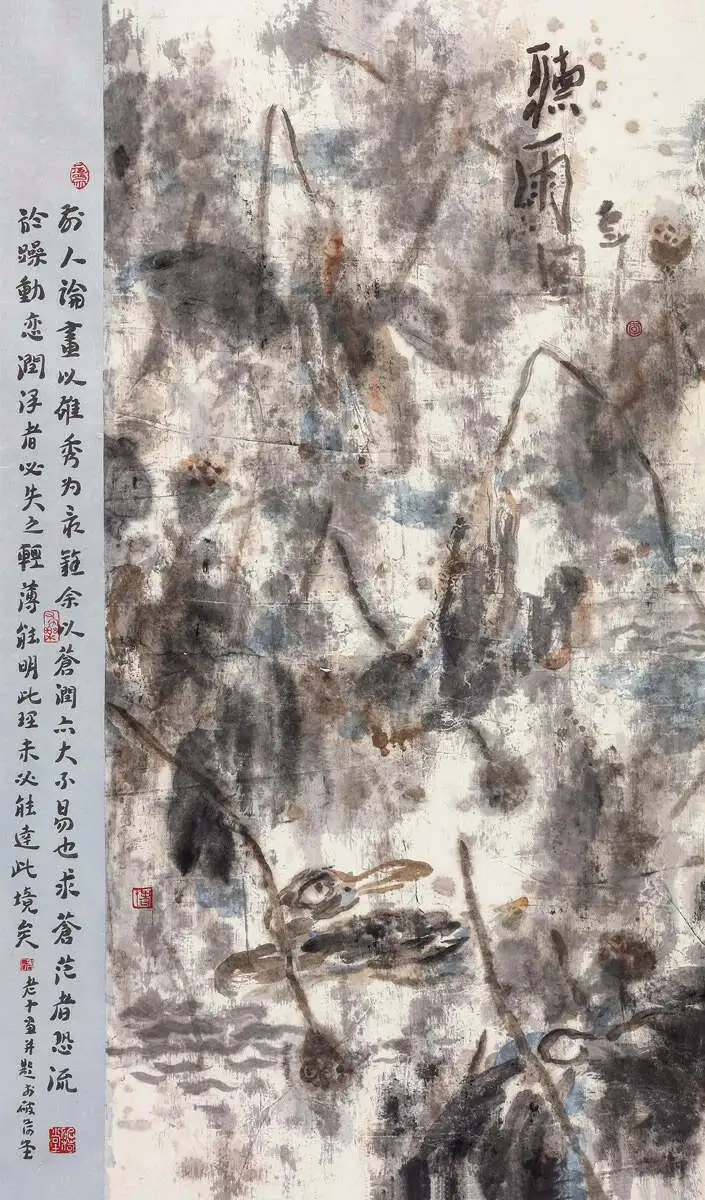 聽雨圖
前人論畫以雄秀为最難余以蒼潤亦大不易也求蒼茫者恐流
於躁動恋潤浮者必失之輕薄能明此理未必能達此境矣
老十畫并題於破荷堂